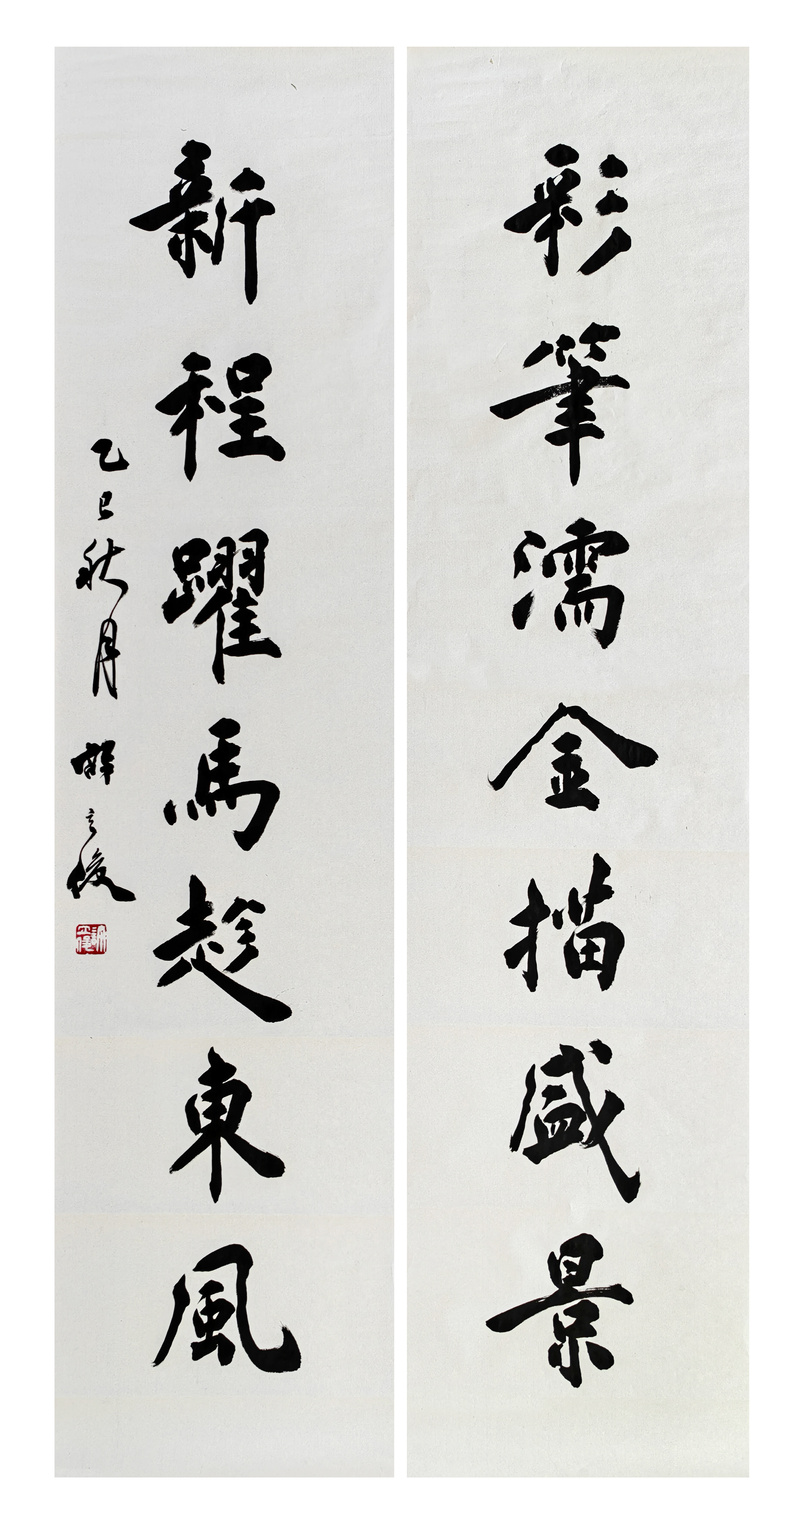 彩筆濡金描盛景
新程躍馬趁東風
乙巳秋月